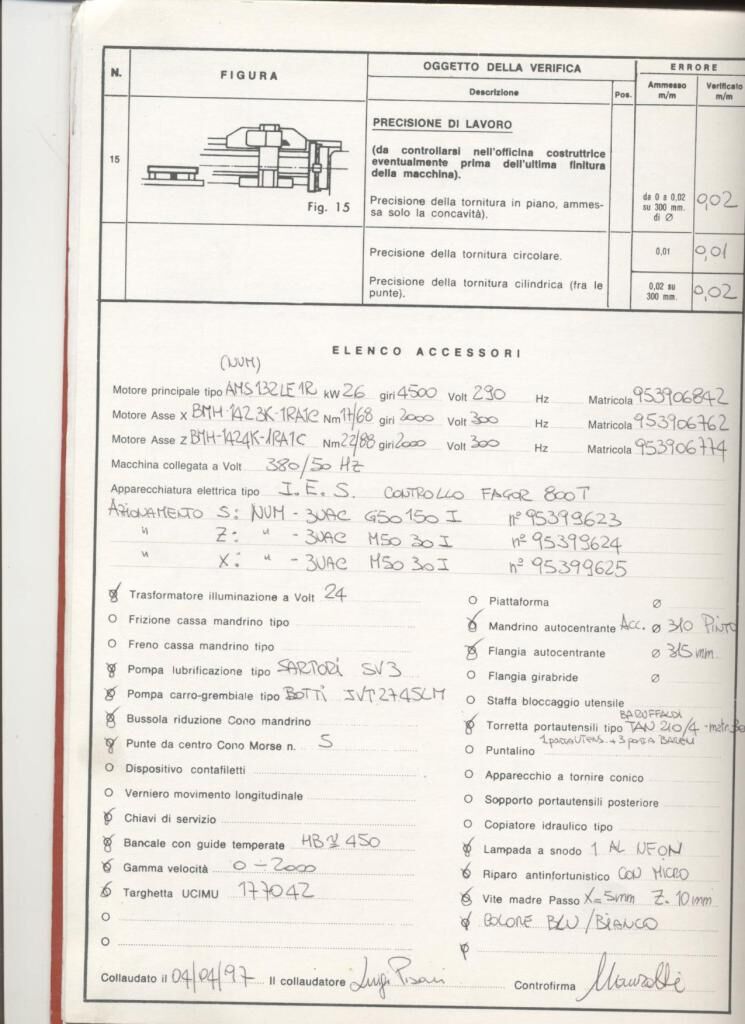 N. FIGURA OGGETTO DELLA VERIFICA ERRORE
Descrizione Pos. Ammesso m/m Verificato m/m
15
PRECISIONE DI LAVORO
(da controllarsi nell'officina costruttrice
eventualmente prima dell'ultima finitura
della macchina).
Precisione della tornitura in piano, ammes-
sa solo la concavità).
da 0 a 0,02
su 300 mm.
di Ø
0,02
Fig. 15
Precisione della tornitura circolare. 0,01 0,01
Precisione della tornitura cilindrica (fra le
punte).
0,02 su
300 mm.
0,02
ELENCO ACCESSORI
(NUM)
Motore principale tipo AMS132LE1R kW 26 giri 4500 Volt 290 Hz Matricola 953906842
Motore Asse X BMH-1423K-1RA1C Nm 17/68 giri 2000 Volt 300 Hz Matricola 953906762
Motore Asse Z BMH-1424K-1RA1C Nm 22/88 giri 2000 Volt 300 Hz Matricola 953906774
Macchina collegata a Volt 380/50 HZ
Apparecchiatura elettrica tipo I.E.S. CONTROLLO FAGOR 800T
AZIONAMENTO S: NUM - 3VAC G50 150 I n° 95399623
" Z: " - 3VAC M50 30 I n° 95399624
" X: " - 3VAC M50 30 I n° 95399625
Trasformatore illuminazione a Volt 24
Frizione cassa mandrino tipo
Freno cassa mandrino tipo
Pompa lubrificazione tipo SARTORI SV3
Pompa carro-grembiale tipo BOTTI JVT274SLM
Bussola riduzione Cono mandrino
Punte da centro Cono Morse n. 5
Dispositivo contafiletti
Verniero movimento longitudinale
Chiavi di servizio
Bancale con guide temperate HB 450
Gamma velocità 0 - 2000
Targhetta UCIMU 177042
Piattaforma Ø
Mandrino autocentrante Acc. Ø 310 PINTO
Flangia autocentrante Ø 315 mm
Flangia girabride Ø
Staffa bloccaggio utensile
BARUFFALDI
Torretta portautensili tipo TAN 210/4 - matr.
1 portaUTENS. + 3 porta BARENI
Puntalino
Apparecchio a tornire conico
Sopporto portautensili posteriore
Copiatore idraulico tipo
Lampada a snodo 1 AL NEON
Riparo antinfortunistico CON MICRO
Vite madre Passo X=5mm Z. 10 mm
COLORE BLU/BIANCO
Collaudato il 04/04/97 Il collaudatore Luigi Pisani Controfirma